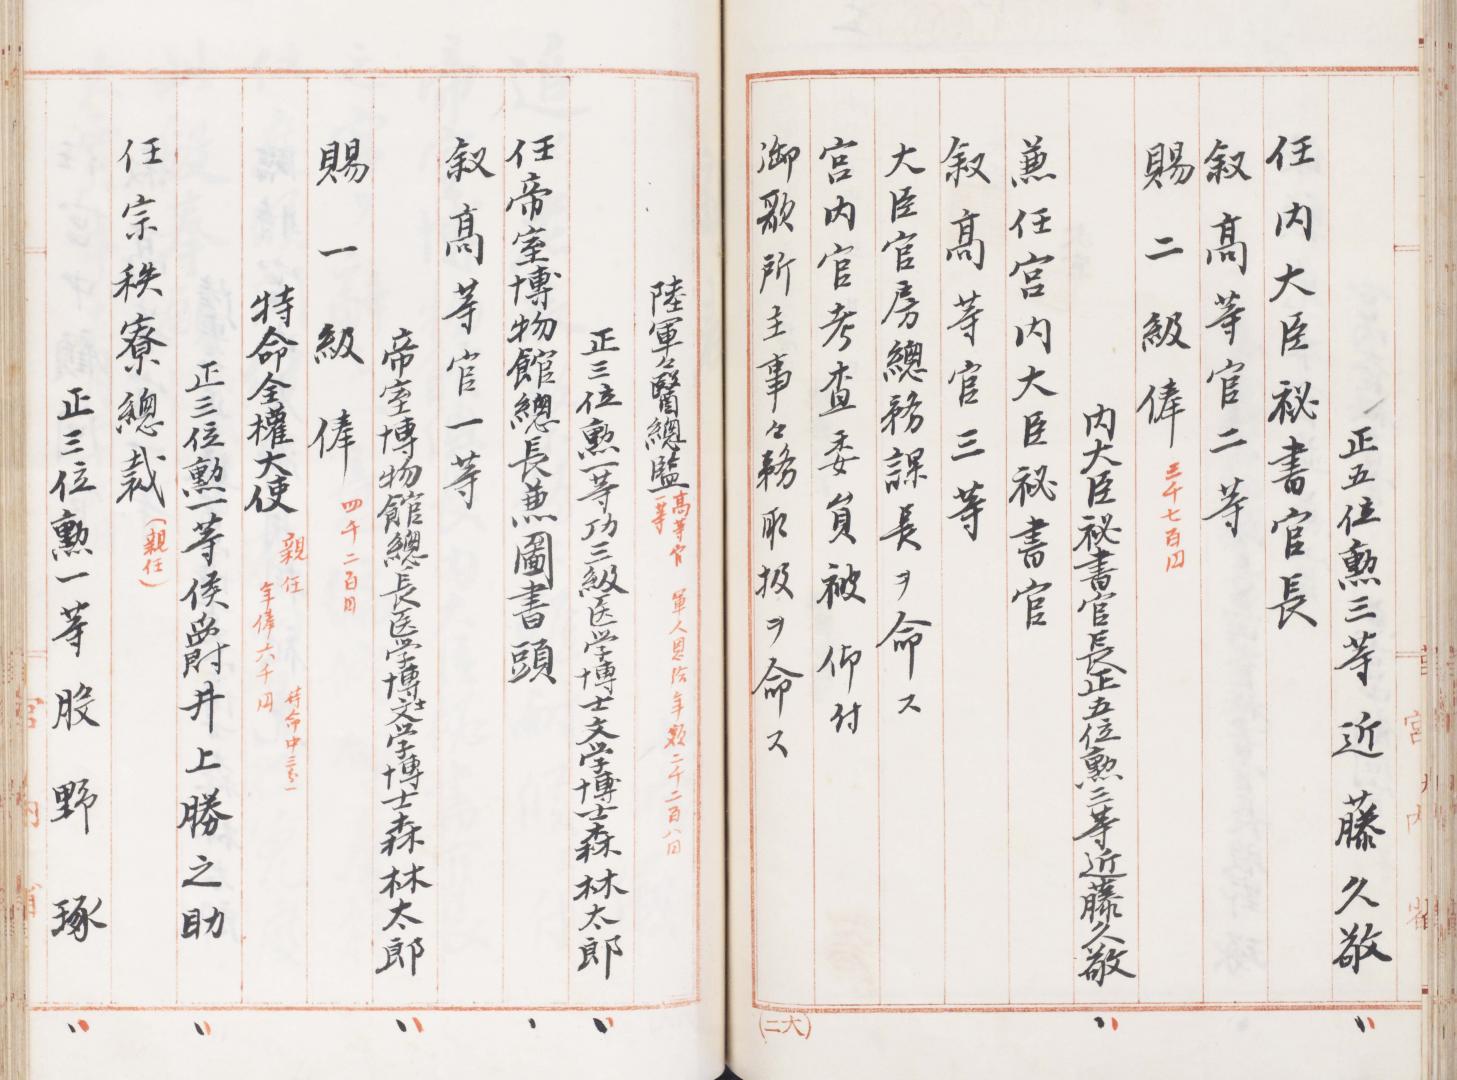 正五位勲三等近藤久敬
任内大臣祕書官長
叙高等官二等
賜二級俸 三千七百円
内大臣祕書官長正五位勲三等近藤久敬
兼任宮内大臣祕書官
叙高等官三等
大臣官房總務課長ヲ命ス
宮内官考査委員被仰付
御歌所主事々務取扱ヲ命ス
(大二)
陸軍々醫總監 高等官一等 軍人恩給年額二千二百八円
正三位勲一等功三級医学博士文学博士森林太郎
任帝室博物館總長兼圖書頭
叙高等官一等
帝室博物館總長医学博士文学博士森林太郎
賜一級俸 四千二百円
特命全權大使 親任 年俸六千円
正三位勲一等侯爵井上勝之助
任宗秩寮總裁 (親任)
正三位勲一等股野琢
宮内省